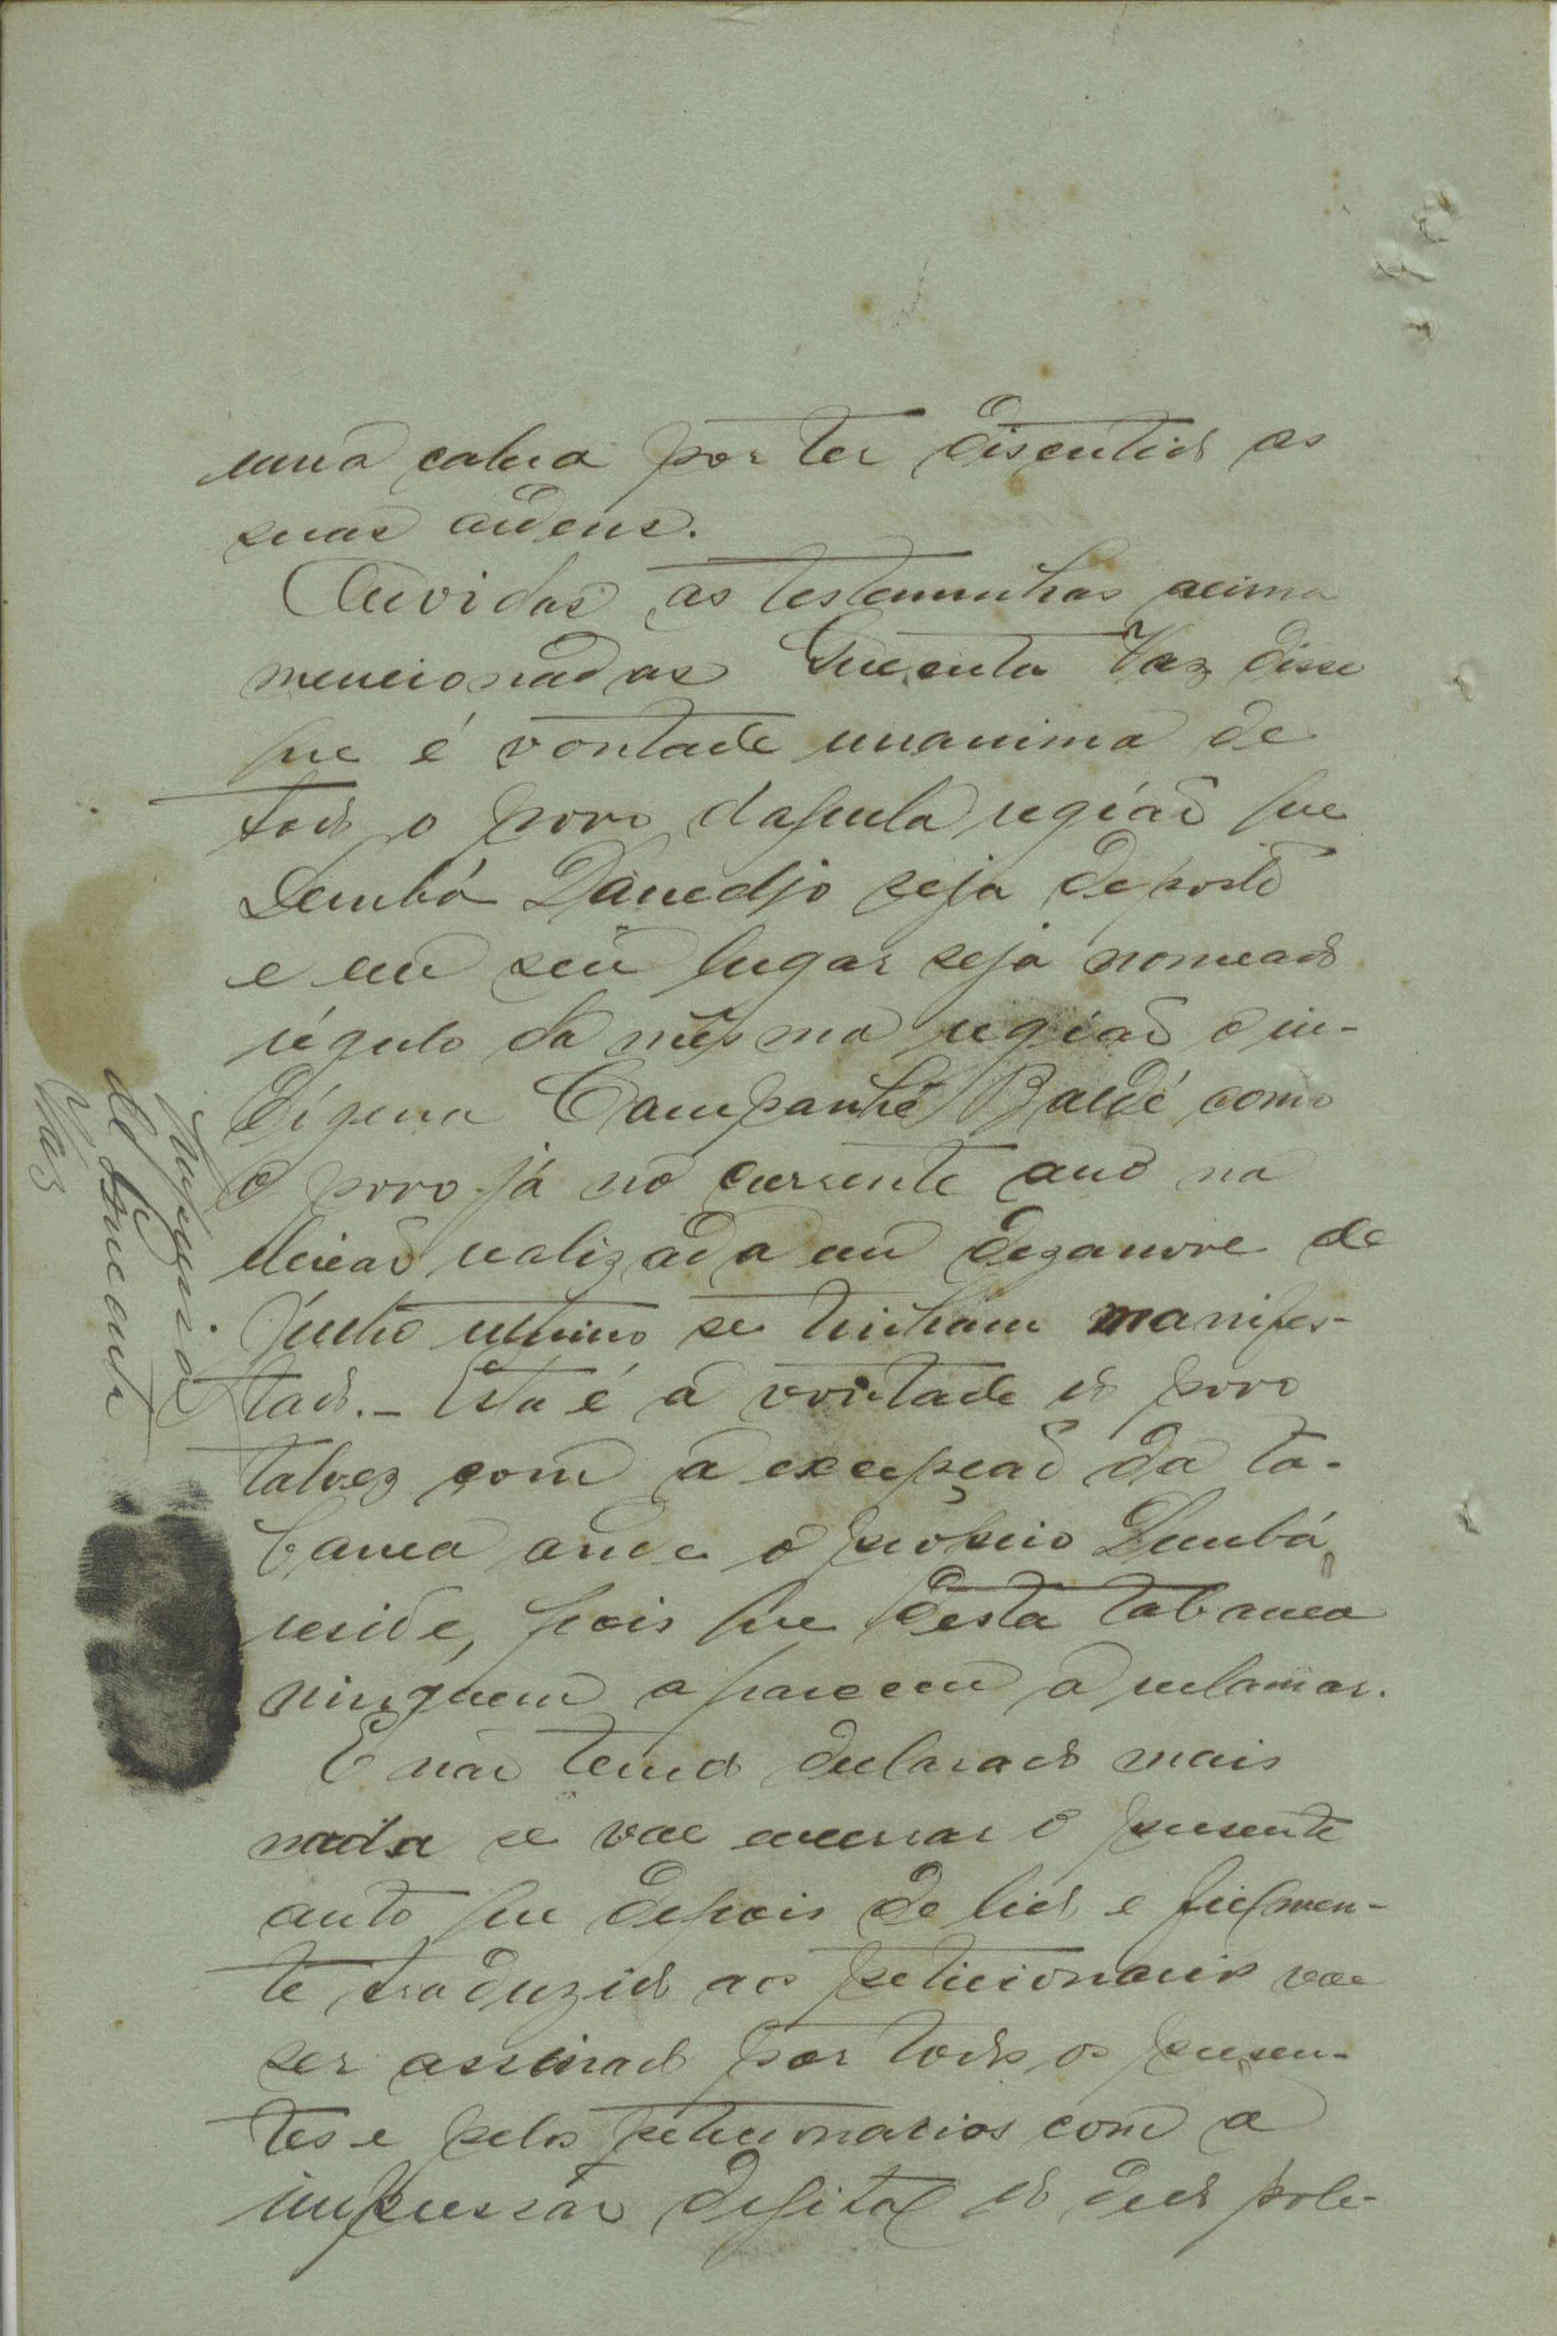 uma cabra por ter discutido as
suas ordens.
Ouvidas as testemunhas acima
mencionadas Quecuta Vaz disse
que é vontade unanima de
todo o povo daquela região que
Dembá Danedjo seja deposto
e em seu lugar seja nomeado
régulo da mesma região o in-
digena Campanhe Baldé como
o povo já no currente ano na
eleicão realizada em dezanove de
Junho ultimo se tinham manifes-
tado. - Esta é a vontade do povo
talvez com a excepção da ta-
banca onde o proprio Dembá
reside, pois que desta tabanca
ninguem apareceu a reclamar.
E não tendo declarado mais
nada se vae encerrar o presente
auto que depois de lido e fielmen-
te traduzido aos peticionarios vae
ser assinado por todos os presen-
tes e pelos peticionarios com a
impressão digital do dedo pole-
Impressão
de Quecuta
Vaz